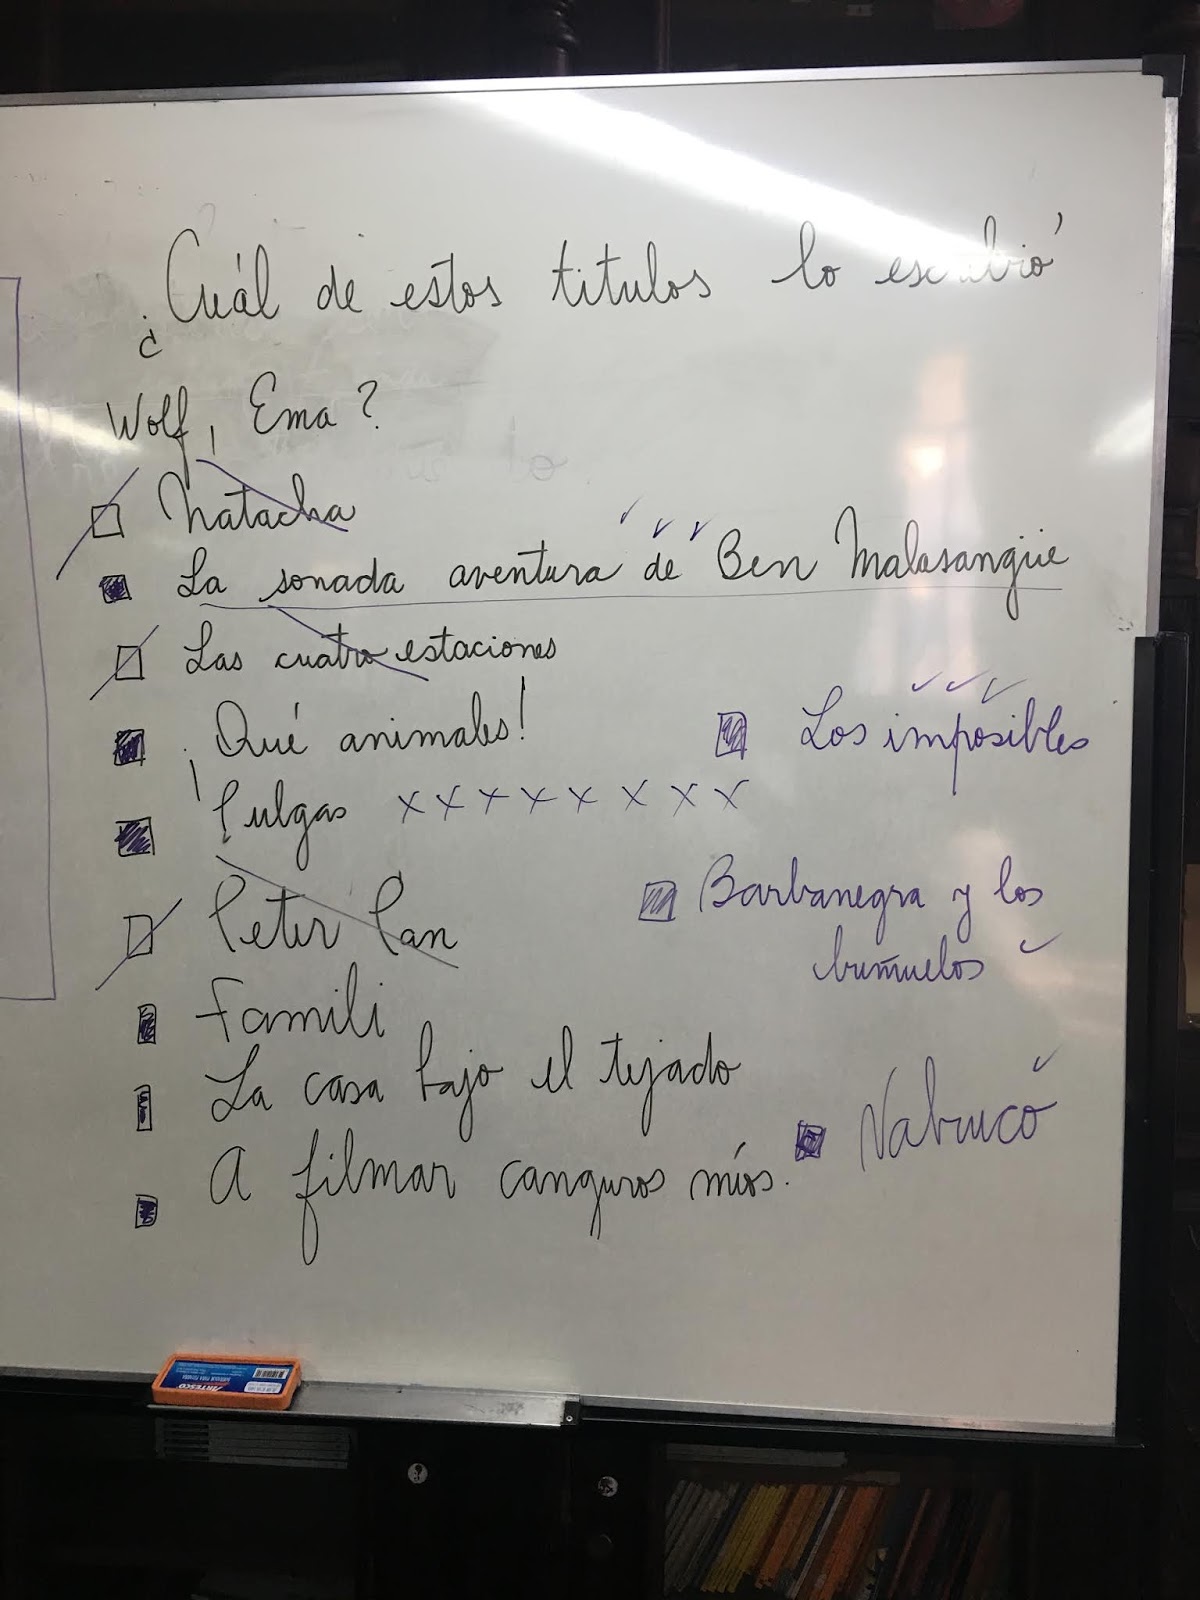 ¿Cuál de estos titulos lo escribió
Wolf, Ema?
Natacha
La sonada aventura de Ben Malasangüe
Las cuatro estaciones
¡Qué animales!
Pulgas xxxxxxxx
Peter Pan
Famili
La casa bajo el tejado
A filmar canguros míos.
Los imposibles
Barbanegra y los
buñuelos
Nabuco
ARTESCO